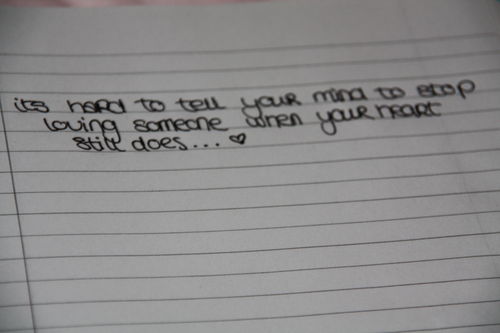 its hard to tell your mind to stop
loving someone when your heart
still does... ♡